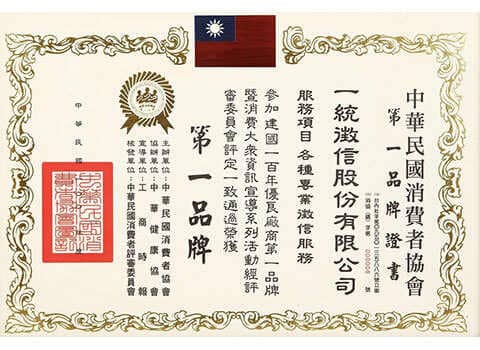 中華民國消費者協會
第一品牌證書
一統徵信股份有限公司
服務項目 各種專業徵信服務
參加建國一百年優良廠商第一品牌
暨消費大眾資訊宣導系列活動經評
審委員會評定一致通過榮獲
第一品牌
主辦單位：中華民國消費者協會
協辦單位：中華健康協會
宣導單位：工商時報
核發單位：中華民國消費者評審委員會
中華民國